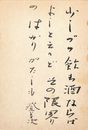 少しづつ飲む酒ならば
よしと云へどその限界
のはかりがたしも